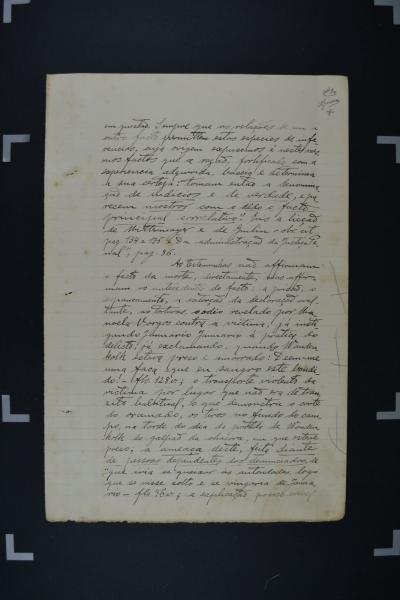 em questão. Sempre que as relações de um a
outro facto permittem estas especies de infe
rencias, cuja origem expusemos é nestes mes
mos factos que a razão, fortificada com a
experiencia adquirida, baseia e determina
a sua certeza: tomam então a denomina
ção de indicios e de verdade, e pa
recem mostrar com o dedo o facto
principal correlativo". Eis a lição
de Mittermayer e de
pag. 134 a 135 e "Da administração da Justiça Pe
nal", pag. 96.
As testemunhas não affirmam
o facto da morte, directamente, mas affir
mam os antecedentes do facto, a prisão, o
espancamento, a da declaração
as torturas, o odio revelado por Ma
noel Vargas contra a victima, já
Januario Januario á pratica do
delicto, já exclamando, quando Wander
kolk estava preso e amarrado: Deem-me
uma faca que eu sangro este bandi
do! - (fls. 128v); o transporte violento da
victima por lugar que não era de tran
sito habitual, o que demonstra a carta
do os tiros no fundo do cam
po, na tarde do dia da partida de Wander
kolk do galpão da chacra, em que esteve
preso; a ameaça deste, feita diante
de pessoas dependentes dos denunciados, de
"que iria se queixar ás autoridades, logo
que se visse solto e se vingaria de Janua
rio - fls. 46v; a explicação